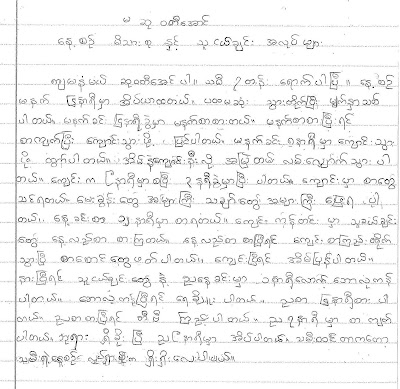 မ ဆု ဝတီအောင်
နေ့စဉ် မိသားစု နှင့် သူငယ်ချင်း အလုပ်များ
ကျမနံမယ် ဆုဝတီအောင် ပါ။ သမီ ၇ တန်း ရောက်ပါပြီ ။ နေ့စဉ်
မနက် ၆နာရီမှာ အိပ်ယာထတယ်။ ပထမဆုံး သွားတိုက်ပြီး မျက်နှာသစ်
ပါတယ်။ မနက်ခင်း ၆နာရီခွဲမှာ မနက်စာစားတယ်။ မနက်စာစားပြီးရင်
စာကျက်ပြီး ကျောင်းသွားဖို့ ပြင်ပါတယ်။ မနက်ခင်း ၈နာရီမှာ ကျောင်းသွား
ဖို့ ထွက်ပါတယ်။ အိမ်နဲ့ကျောင်းနီးလို့ အမြဲတမ်း လမ်းလျှောက်သွားပါ
တယ်။ ကျောင်းက ၉နာရီမှာစပြီး ၃နာရီခွဲမှာပြီး ပါတယ်။ ကျောင်းမှာ စာတွေ
သင်ရတယ်။ မေးခွန်းတွေ အများကြီး သချာင်္တွေ အများကြီး ဖြေရ ပါ
တယ်။ နေ့ခင်းစာ ၁၂နာရီမှာ စာရတယ်။ ကျောင်း ကန်တင်း မှာ သူငယ်ချင်း
တွေ နေ့လည်စာ စာကြတယ်။ နေ့လည်စာ စာပြီရင် ကျောင်း စာကြည့်တိုက်
သွားပြီ စာစောင်တွေဖတ်ပါတယ်။ ကျောင်းပြီရင် အိမ်ပြန်ပါတယ်။
နားပြီရင် သူငယ်ချင်တွေ နဲ့ ညနေခင်းမှာ ၁နာရီလောက် ဘောလုံးကန်
ပါတယ်။ ဘောလုံးကန်ပြီရင် ရေချိုး ပါတယ်။ ညစာ ၆နာရီစား ပါ
တယ်။ ညစာစာပြီရင် တီဗီ ကြည့်ပါတယ်။ ည ၇နာရီမှာ စာကျက်
ပါတယ်။ ဘုရား ရှိခိုးပြီ ည ၉နာရီမှာ အိပ်ပါတယ်။ သမီးထင်တာကတော့
သမီးရဲ့နေ့စဉ်